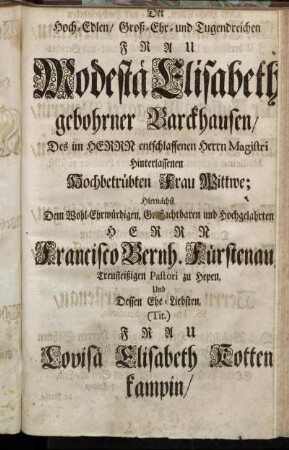 Der
Hoch-Edlen/ Groß-Ehr-und Tugendreichen
FRAU
Modestä Elisabeth
gebohrner Barckhausen/
Des im HERRN entschlaffenen Herrn Magistri
Hinterlassenen
Hochbetrübten Frau Wittwe;
Hiernächst
Dem Wohl-Ehrwürdigen, Großachtbaren und Hochgelahrten
HERRN
Francisco Bernh. Fürstenau
Treufleißigen Pastori zu Hepen,
Und
Dessen Ehe-Liebsten,
(Tit.)
FRAU
Lovisä Elisabeth Kotten
kampin/